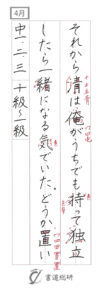 4月
それから清は俺がうちでも持って独立
したら一緒になる気でいた。どうか置い
中一・二・三 十級〜一級
書道総研